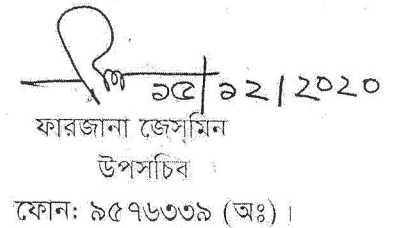 ১৫/১২/২০২০
ফারজানা জেস্‌মিন
উপসচিব
ফোন: ৯৫৭৬৩৩৯ (অঃ) ।